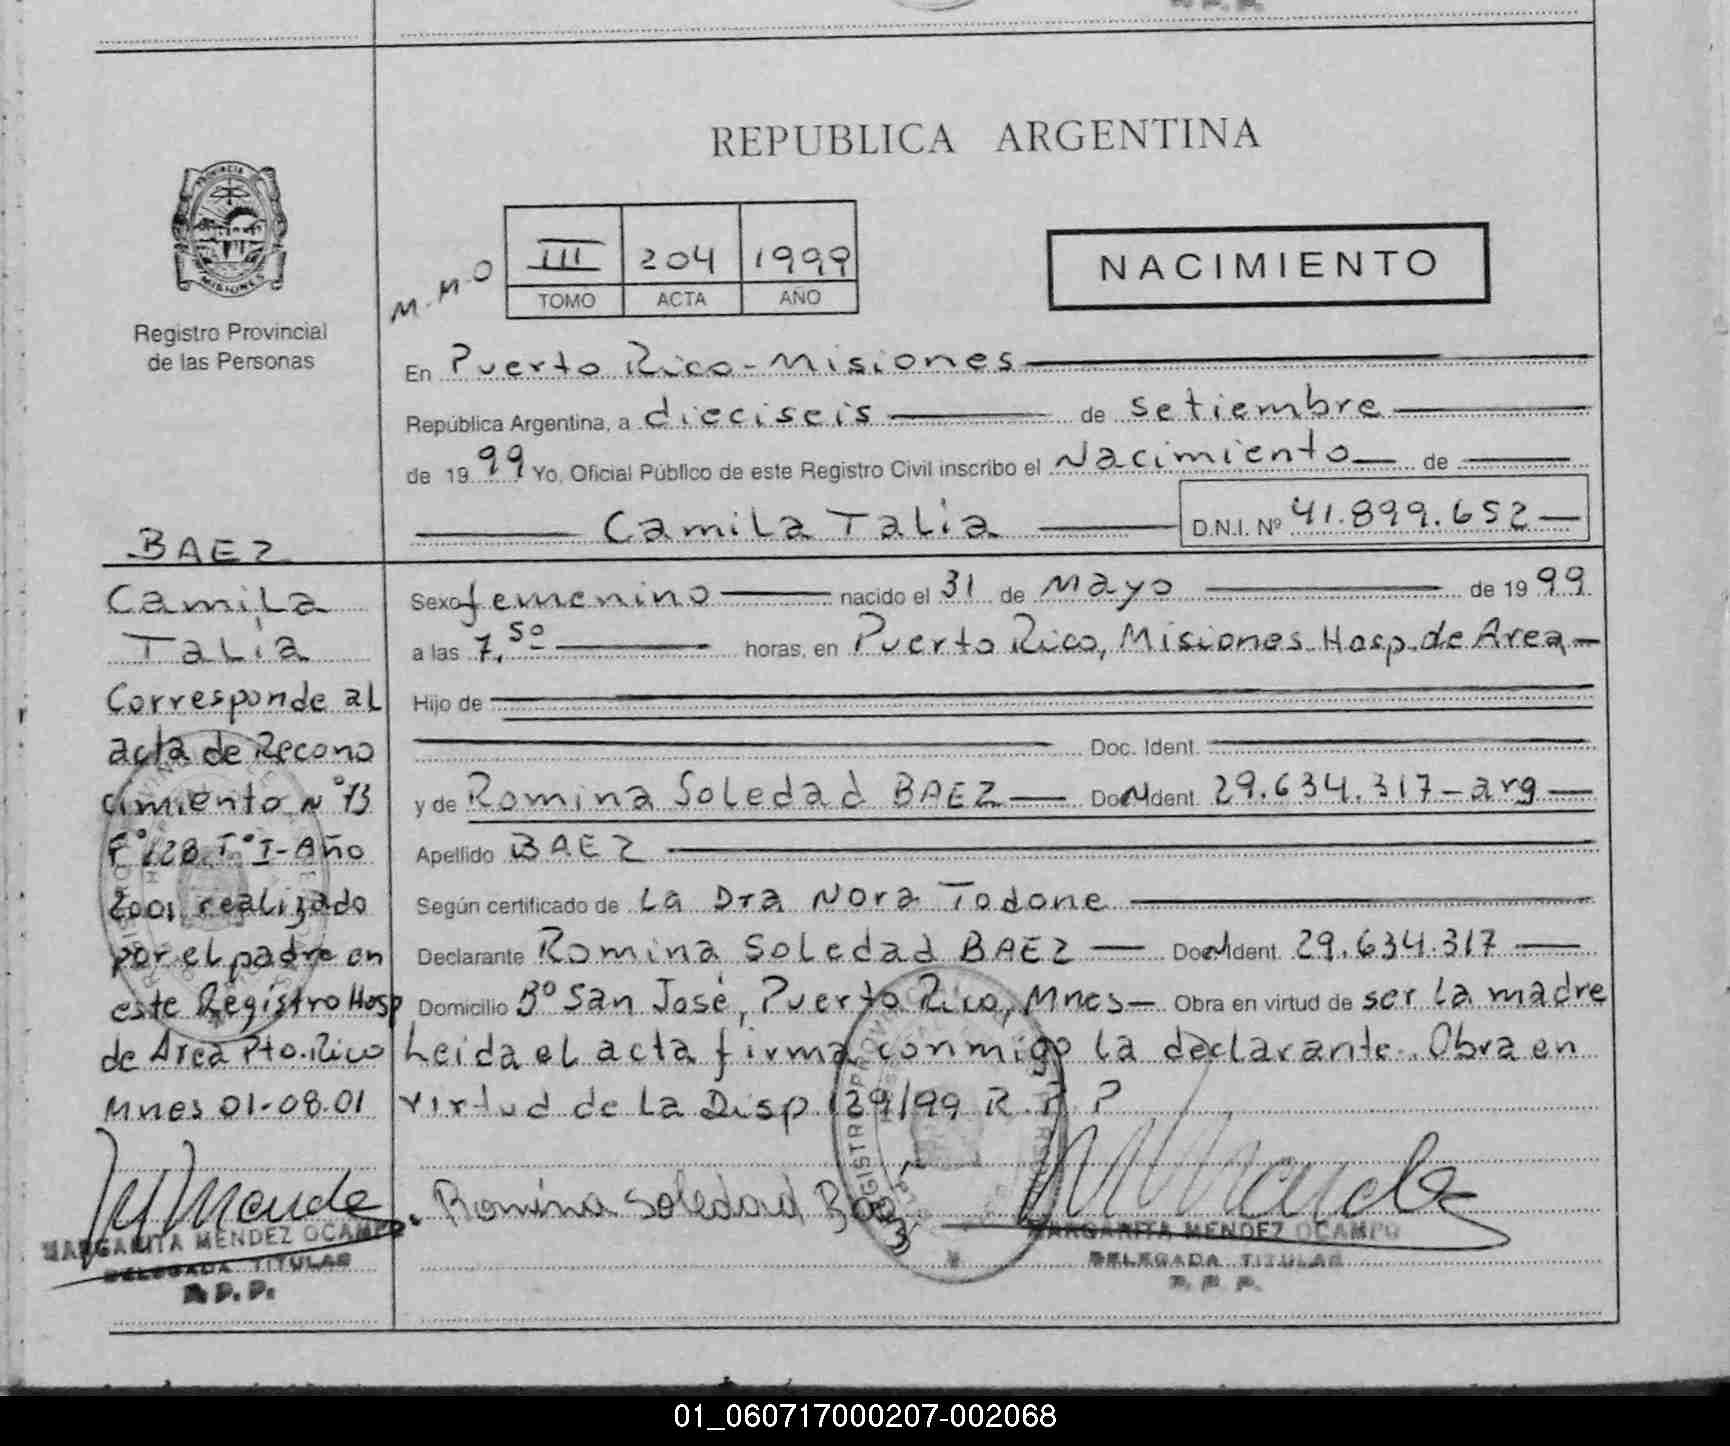 REPUBLICA ARGENTINA
PROVINCIA
MISIONES
Registro Provincial
de las Personas
M.M.O
III 204 1999
TOMO ACTA AÑO
NACIMIENTO
En Puerto Rico - Misiones
República Argentina, a dieciseis de setiembre
de 1999 Yo, Oficial Público de este Registro Civil inscribo el Nacimiento de
Camila Talia D.N.I. Nº 41.899.652
Sexo femenino nacido el 31 de Mayo de 1999
a las 7,50 horas, en Puerto Rico, Misiones Hosp. de Area
Hijo de
Doc. Ident.
y de Romina Soledad BAEZ Doc Ident. 29.634.317 - arg
Apellido BAEZ
Según certificado de La Dra Nora Todone
Declarante Romina Soledad BAEZ Doc Ident. 29.634.317
Domicilio Bº San José, Puerto Rico, Mnes Obra en virtud de ser la madre
Leida el acta firma conmigo la declarante. Obra en
virtud de la Disp 129/99 R.P.P
Romina Soledad Baez
MARGARITA MENDEZ OCAMPO
DELEGADA TITULAR
R.P.P.
BAEZ
Camila
Talia
Corresponde al
acta de Recono
cimiento Nº 73
Fº 128 Tº I - Año
2001 realizado
por el padre en
este Registro Hosp
de Area Pto. Rico
Mnes 01-08-01
MARGARITA MENDEZ OCAMPO
DELEGADA TITULAR
R.P.P.
01_060717000207-002068